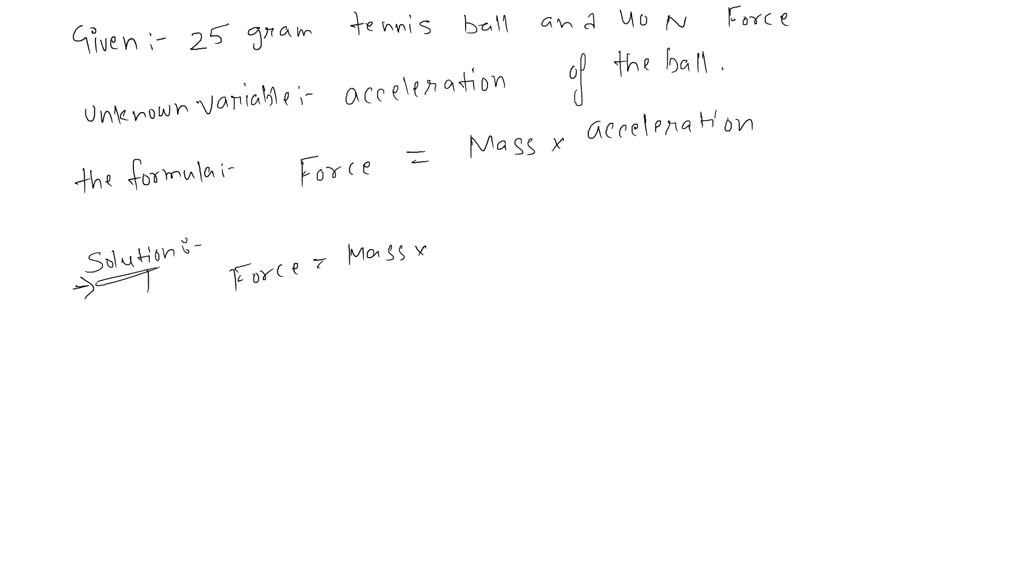 Given :- 25 gram tennis ball and 40 N Force
unknown variable :- acceleration of the ball.
the formula :- Force = Mass x acceleration
Solution :-
Force = Mass x